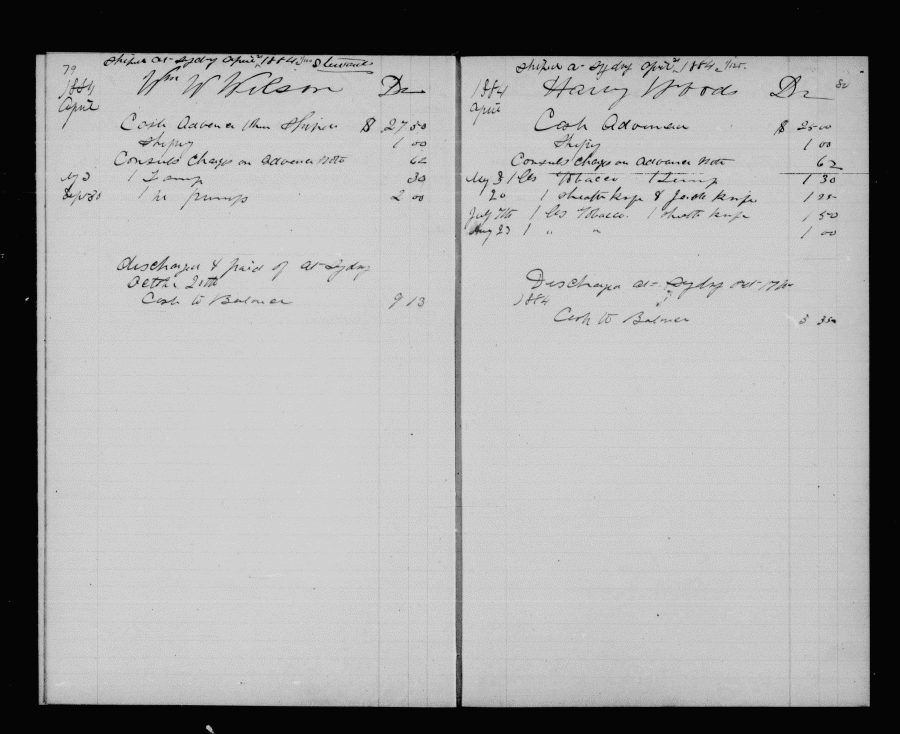 79
Shiped at Sydny April 1884 Stewards
1884 Wm W Wilson Dr
April
Cash Advance when Shiped $ 27 50
Shiping 1 00
Consuls Charge on Advance Note 62
My 3 1 Lamp 30
Sept 30 1 Pr pumps 2 00
Discharged & paid of at Sydny
Octbr 20th
Cash to Balance 9 13
80
Shiped at Sydny April 1884
1884 Harry Woods Dr
April
Cash Advance $ 25 00
Shiping 1 00
Consuls Charge on Advance Note 62
My 3 1 lbs Tobacco 1 Lamp 1 30
20 1 sheath knife & Jack knife 1 25
July 7th 1 lbs Tobacco. 1 sheath knife 1 50
Aug 23 1 " " 1 00
Discharged at Sydny Oct 17th
1884
Cash to Balance 3 35